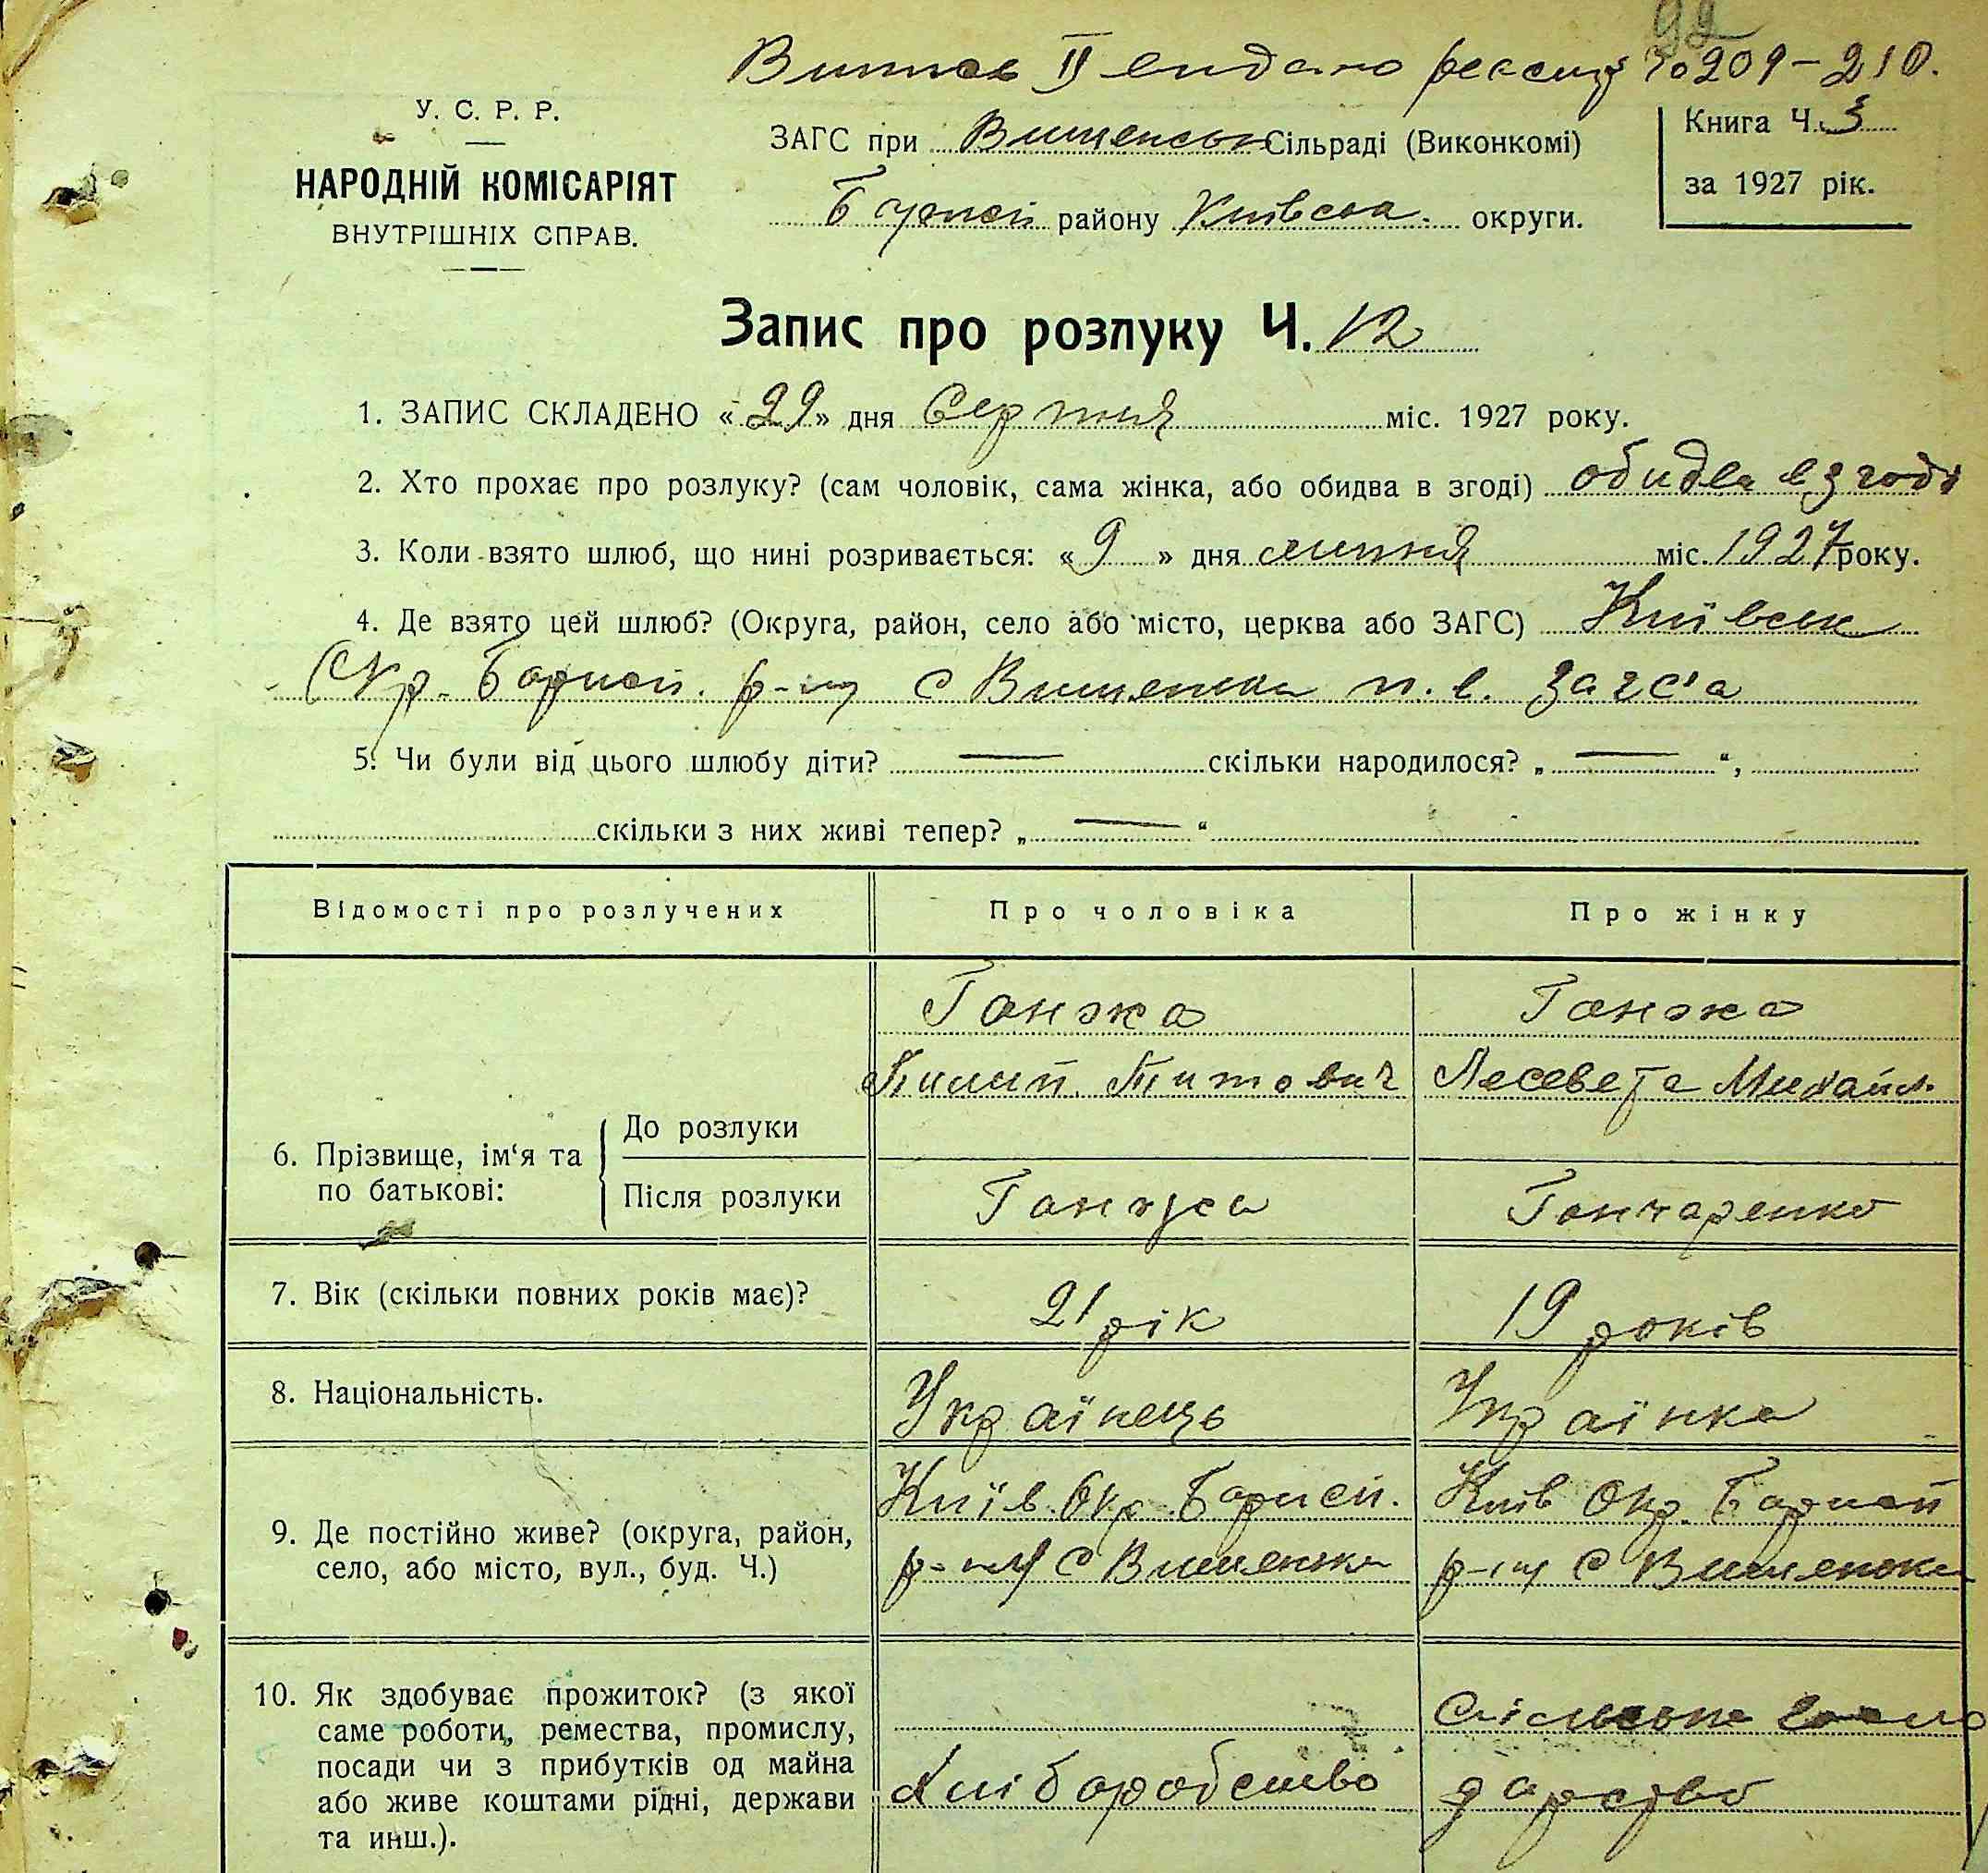 92
Випись II видано реєстр 209-210.
У. С. Р. Р.
НАРОДНІЙ КОМІСАРІЯТ
ВНУТРІШНІХ СПРАВ.
ЗАГС при Вишенськ Сільраді (Виконкомі)
району Київська округи.
Книга Ч. 3
за 1927 рік.
Запис про розлуку Ч. 12
1. ЗАПИС СКЛАДЕНО « 29 » дня Серпня міс. 1927 року.
2. Хто прохає про розлуку? (сам чоловік, сама жінка, або обидва в згоді) обидва в згоді
3. Коли взято шлюб, що нині розривається: « 9 » дня липня міс. 1927 року.
4. Де взято цей шлюб? (Округа, район, село або місто, церква або ЗАГС) Київськ
Окр. Борисп. р-ну с Вишеньки п. в. Загс'а
5. Чи були від цього шлюбу діти? — скільки народилося? „ — “,
скільки з них живі тепер? „ — “
Відомості про розлучених
Про чоловіка
Про жінку
6. Прізвище, ім‘я та по батькові:
До розлуки
Ганжа
Пилип Титович
Ганжа
Лесевета Михайл.
Після розлуки
Ганжа
Гончаренко
7. Вік (скільки повних років має)?
21 рік
19 років
8. Національність.
Українець
Українка
9. Де постійно живе? (округа, район,
село, або місто, вул., буд. Ч.)
Київ. Окр. Борисп.
р-ну с Вишеньки
Київ Окр. Борисп
р-ну с Вишеньки
10. Як здобуває прожиток? (з якої
саме роботи, ремества, промислу,
посади чи з прибутків од майна
або живе коштами рідні, держави
та инш.).
Хліборобство
Сільське госпо
дарство